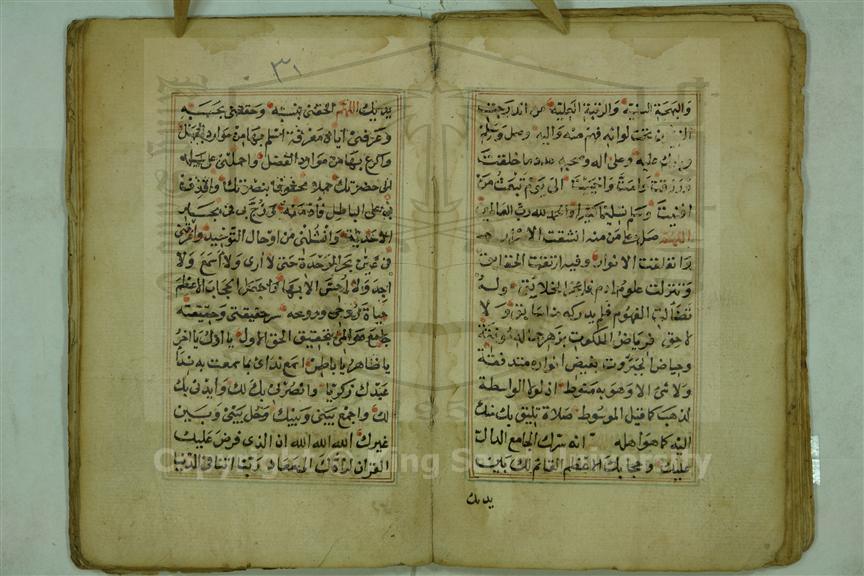 والبهجة السنية والرتبة العلية من اندرجت
النبيين تحت لوائه فهم منه واليه وصل وسلم
وبارك عليه وعلى اله وصحبه عدد ما خلقت
ورزقت وامت واحييت الى يوم تبعث من
افنيت وسلم تسليما كثيرا والحمد لله رب العالمين
اللهم صل على من منه انشقت الاسرار
وانفلقت الانوار وفيه ارتقت الحقايق
وتنزلت علوم ادم فاعجز الخلايق وله
تضألت الفهوم فلم يدركه منا سابق ولا
لاحق فرياض الملكوت بزهر جماله مونقة
وحياض الجبروت بفيض انواره متدفقة
ولا شئ الا وهو به منوط اذ لولا الواسطة
لذهب كما قيل الموسوط صلاة تليق بك منك
اليه كما هو اهله انه سرك الجامع الدال
عليك وحجابك الاعظم القائم لك بين
يديك
٣١
يديك اللهم الحقني بنسبه وحققني بحسبه
وعرفني اياه معرفة اسلم بها من موارد الجهل
واكرع بها من موارد الفضل واحملني على سبيله
الى حضرتك حملا محفوفا بنصرتك واقذف
بي على الباطل فادمغه وزج بي في بحار
الاحدية وانشلني من اوحال التوحيد واغرقني
في عين بحر الوحدة حتى لا ارى ولا اسمع ولا
اجد ولا احس الا بها واجعل الحجاب الاعظم
حياة روحي وروحه سر حقيقتي وحقيقته
جامع عوالمي بتحقيق الحق الاول يا اول يا اخر
يا ظاهر يا باطن اسمع ندائي بما سمعت به ندا
عبدك زكريا وانصرني بك لك وايدني بك
لك واجمع بيني وبينك وحل بيني وبين
غيرك الله الله الله ان الذى فرض عليك
القران لرادك الى معاد ربنا اتنا في الدنيا
Copyright © King Saud University